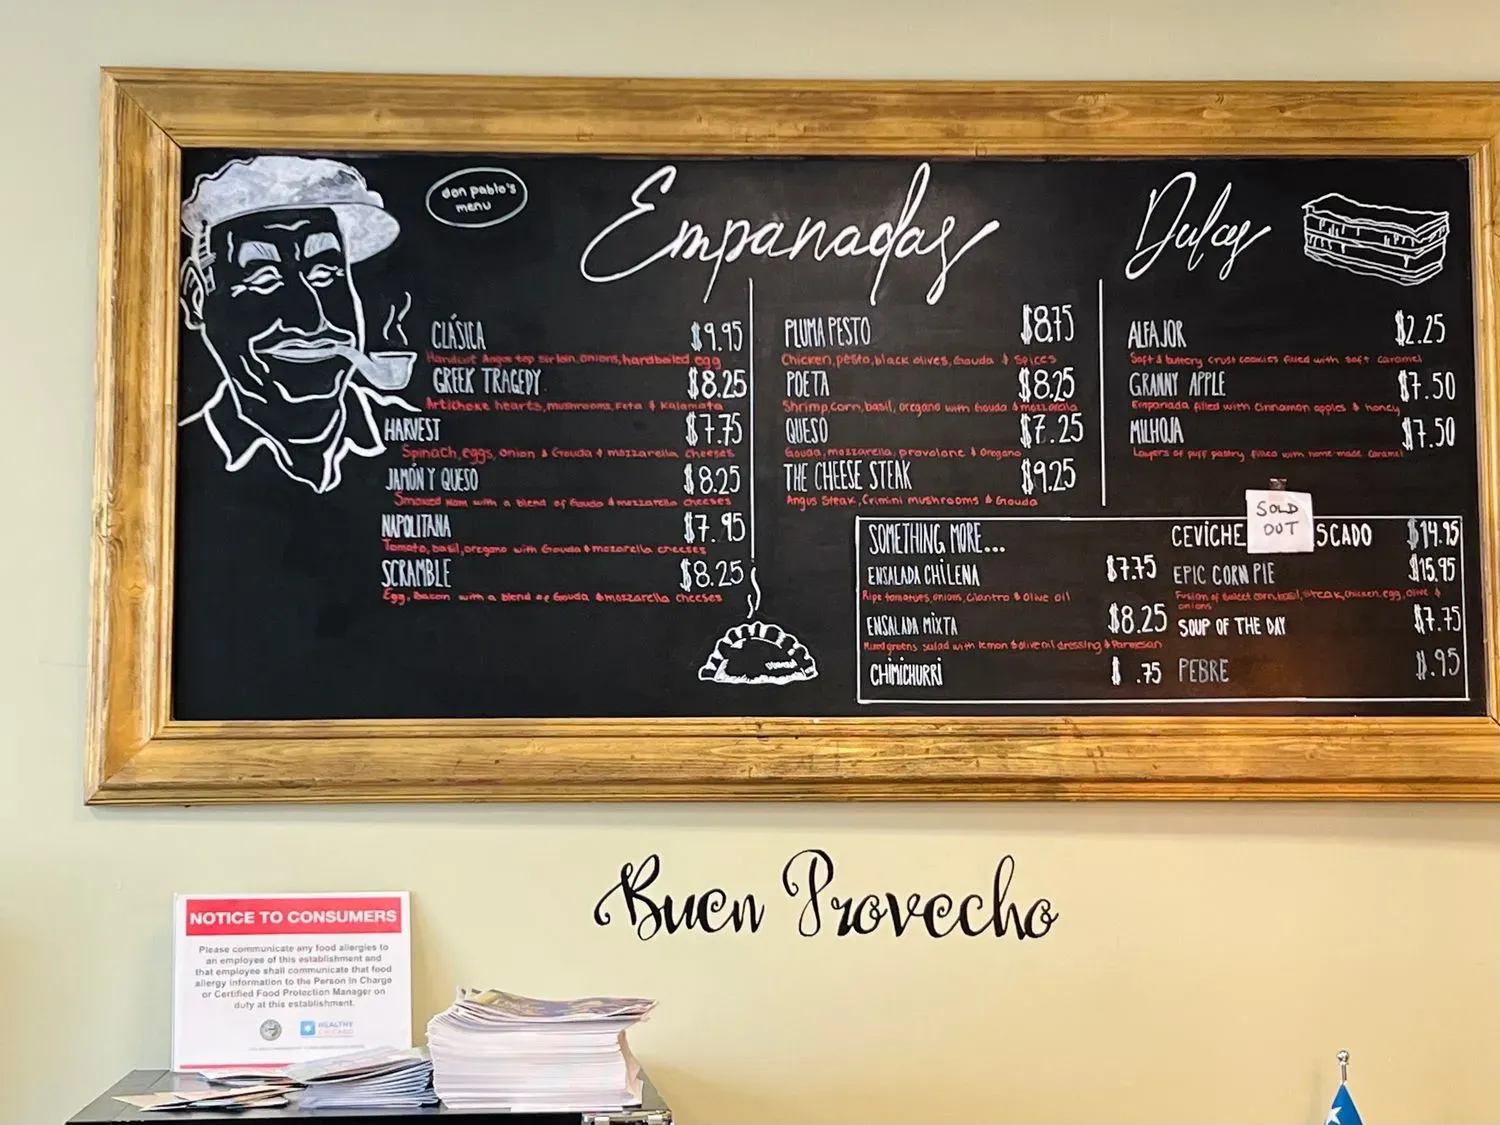 don pablo's
menu
Empanadas
CLÁSICA $9.95
Handcut Angus top sirloin, onions, hardboiled egg
GREEK TRAGEDY $8.25
Artichoke hearts, mushrooms, Feta & Kalamata
HARVEST $7.75
Spinach, eggs, onion & Gouda & mozzarella cheeses
JAMÓN Y QUESO $8.25
Smoked Ham with a blend of Gouda & mozzarella cheeses
NAPOLITANA $7.95
Tomato, basil, oregano with Gouda & mozarella cheeses
SCRAMBLE $8.25
Egg, Bacon with a blend of Gouda & mozzarella cheeses
PLUMA PESTO $8.75
Chicken, pesto, black olives, Gouda & Spices
POETA $8.25
Shrimp, corn, basil, oregano with Gouda & mozzarella
QUESO $7.25
Gouda, mozzarella, provolone & Oregano
THE CHEESE STEAK $9.25
Angus Steak, Crimini mushrooms & Gouda
Dulces
ALFAJOR $2.25
Soft & buttery crust cookies filled with soft caramel
GRANNY APPLE $7.50
Empanada filled with Cinnamon apples & honey
MILHOJA $7.50
Layers of puff pastry filled with home made caramel
SOMETHING MORE...
ENSALADA CHILENA $7.75
Ripe tomatoes, onions, cilantro & Olive oil
ENSALADA MIXTA $8.25
Mixed greens salad with lemon & olive oil dressing & Parmesan
CHIMICHURRI $ .75
SOLD
OUT
CEVICHE SCADO $14.95
EPIC CORN PIE $15.95
Fusion of sweet corn, basil, steak, chicken, egg, olive &
onions
SOUP OF THE DAY $7.75
PEBRE $.95
Buen Provecho
NOTICE TO CONSUMERS
Please communicate any food allergies to
an employee of this establishment and
that employee shall communicate that food
allergy information to the Person in Charge
or Certified Food Protection Manager on
duty at this establishment.
HEALTHY
CHICAGO